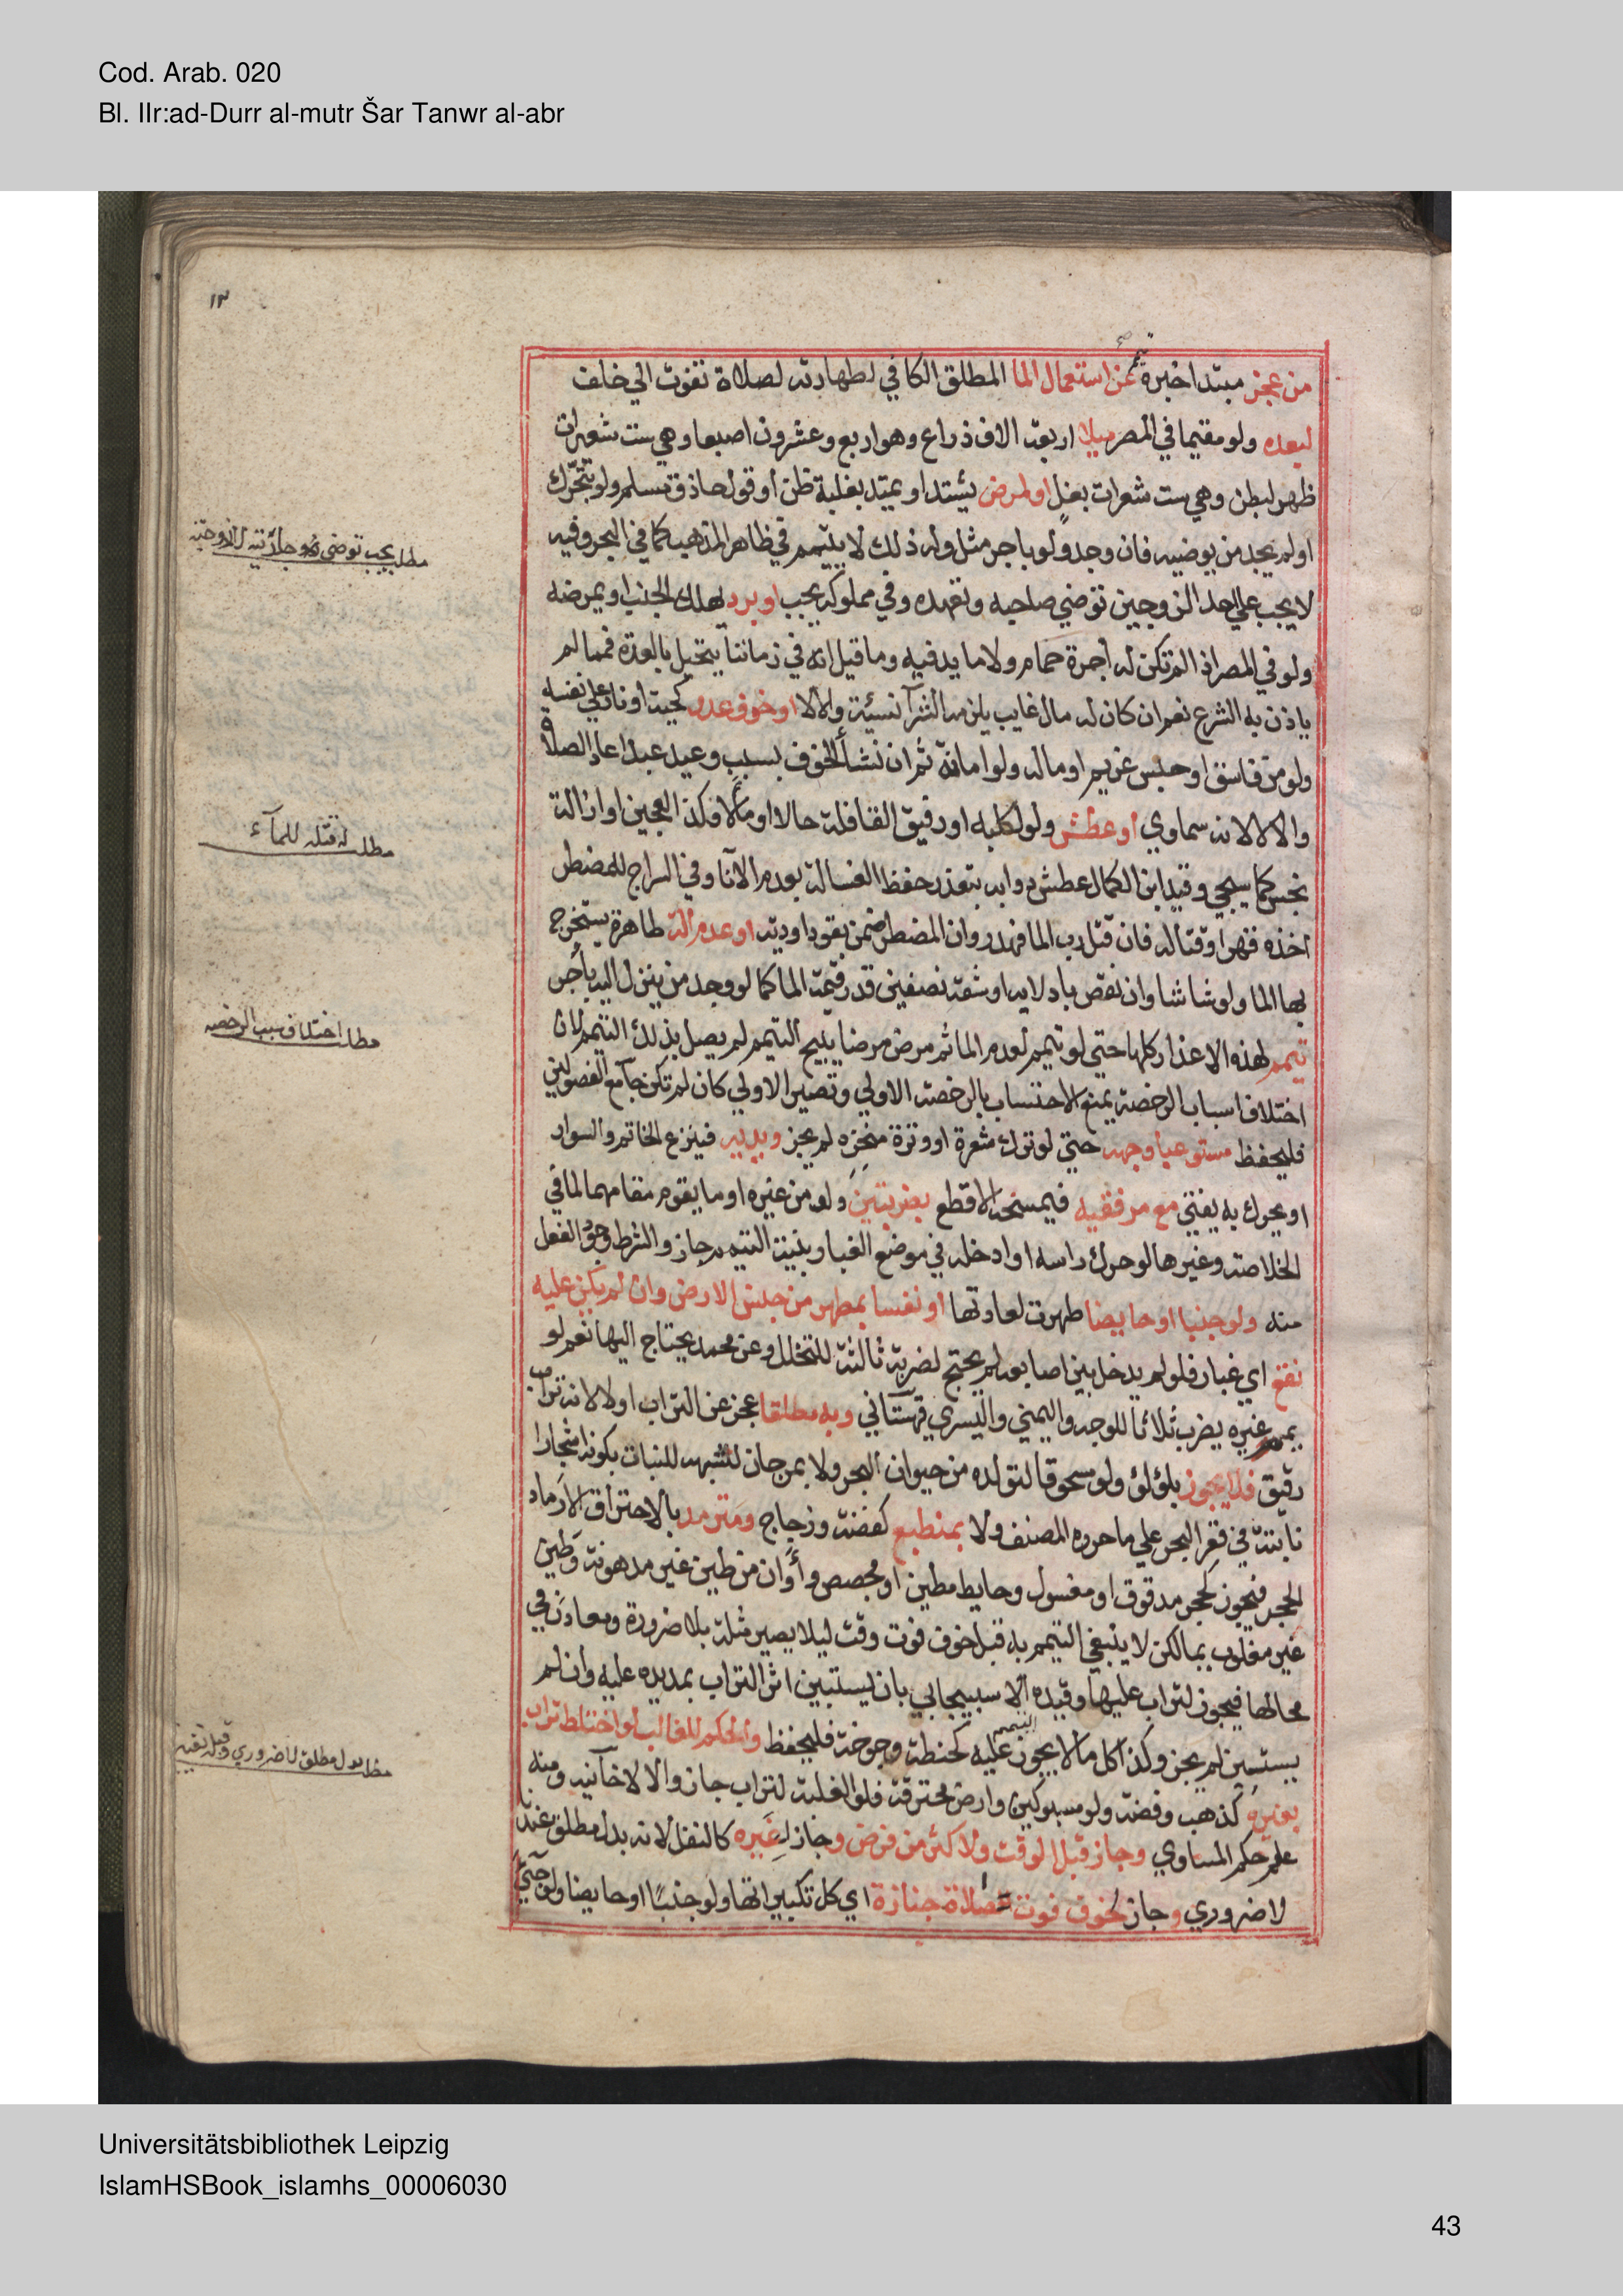 Cod. Arab. 020
Bl. IIr:ad-Durr al-mutr Šar Tanwr al-abr
١٣
من عجز مبتدا خبره تيمم عن استعمال الما المطلق الكافي لطهارته لصلاة تفوت الي خلف
لبعده ولو مقيما في المصر ميلا اربعة الاف ذراع وهو اربع وعشرون اصبعا وهي ست شعيرات
ظهر لبطن وهي ست شعرات بغل او لمرض يشتد او يمتد بغلبة ظن او قول حاذق مسلم ولو بتحرك
او لم يجد من يوضيه فان وجد ولو باجر مثل وله ذلك لا يتيمم في ظاهر المذهب كما في البحر وفيه
لا يجب علي احد الزوجين توضي صاحبه وتعهده وفي مملوكه يجب او برد يهلك الجنب او يمرضه
ولو في المصر اذا لم تكن له اجرة حمام ولا ما يدفيه وما قيل انه في زماننا يتحيل بالعدة فمما لم
ياذن به الشرع نعم ان كان له مال غايب يلزمه الشرآ نسيئة والا لا او خوف عدو كحية او نار علي نفسه
ولو من فاسق او حبس غريم او ماله ولو امانة ثم ان نشأ الخوف بسبب وعيد عبد اعاد الصلاة
والا لا لانه سماوي او عطش ولو لكلبه او رفيق القافلة حالا او مآلا وكذا العجين او ازالة
نجس كما سيجي وقيد ابن الكمال عطش دوابه بتعذر حفظ الغسالة بعدم الانآ وفي السراج للمضطر
اخذه قهرا وقتاله فان قتل رب الما فهدر وان المضطر ضمن بقود او دية او عدم آلة طاهرة يستخرج
بها الما ولو شاشا وان نقص بادلايه او شقه نصفين قدر قيمة الما كما لو وجد من ينزل اليه بأجر
تيمم لهذه الاعذار كلها حتي لو تيمم لعدم الما ثم مرض مرضا يبيح التيمم لم يصل بذلك التيمم لان
اختلاف اسباب الرخصة يمنع الاحتساب بالرخصة الاولي وتصير الاولي كان لم تكن جامع الفصولين
فليحفظ مستوعبا وجهه حتي لو ترك شعرة او وترة منخره لم يجز ويديه فينزع الخاتم والسوار
او يحرك به يفتي مع مرفقيه فيمسحه الاقطع بضربتين ولو من غيره او ما يقوم مقامهما لما في
الخلاصة وغيرها لو حرك راسه او ادخله في موضع الغبار بنية التيمم جاز والشرط وجود الفعل
منه ولو جنبا او حايضا طهرت لعادتها او نفسا بمطهر من جنس الارض وان لم يكن عليه
نقع اي غبار فلو لم يدخل بين اصابعه لم يحتج لضربة ثالثة للتخلل وعن محمد يحتاج اليها نعم لو
يمم غيره يضرب ثلاثا للوجه واليمني واليسري قهستاني وبه مطلقا عجز عن التراب اولا لانه تراب
رقيق فلا يجوز بلؤلؤ ولو مسحوقا لتولده من حيوان البحر ولا بمرجان للشبهه للنبات بكونه اشجارا
نابتة في قعر البحر علي ما حرره المصنف ولا بمنطبع كفضة وزجاج ومترمد بالاحتراق الا رماد
الحجر فيجوز كحجر مدقوق او مغسول وحايط مطين او مجصص وأوان من طين غير مدهونة وطين
غير مغلوب بما لكن لا ينبغي التيمم به قبل خوف فوت وقت ليلا يصير مثلة بلا ضرورة ومعادن في
محالها فيجوز لتراب عليها وقيده الاسبيجابي بان يستبين اثر التراب بمد يده عليه وان لم
يستبين لم يجز وكذا كل ما لا يجوز التيمم عليه كحنطة وجوخة فليحفظ والحكم للغالب لو اختلط تراب
بغيره كذهب وفضة ولو مسبوكين وارض محترقة فلو الغلبة لتراب جاز والا لا خانيه ومنه
علم حكم المساوي وجاز قبل الوقت ولاكثر من فرض وجاز لغيره كالنفل لانه بدل مطلق عندنا
لا ضروري وجاز لخوف فوت صلاة جنازة اي كل تكبيراتها ولو جنبًا او حايضا ولو جئ
مطلب اختلاف سبب الرخصه
Universitätsbibliothek Leipzig
IslamHSBook_islamhs_00006030
43